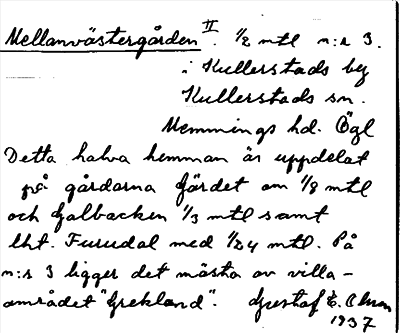 Mellanvästergården II. 1/2 mtl n:r 3.
i Kullerstads by
Kullerstads sn.
Memmings hd. Ögl
Detta halva hemman är uppdelat
på gårdarna Gärdet om 1/8 mtl
och Galbacken 1/3 mtl samt
lht. Furudal med 1/24 mtl. På
n:r 3 ligger det mästa av villa-
området "Grekland". Gustaf E.
1937